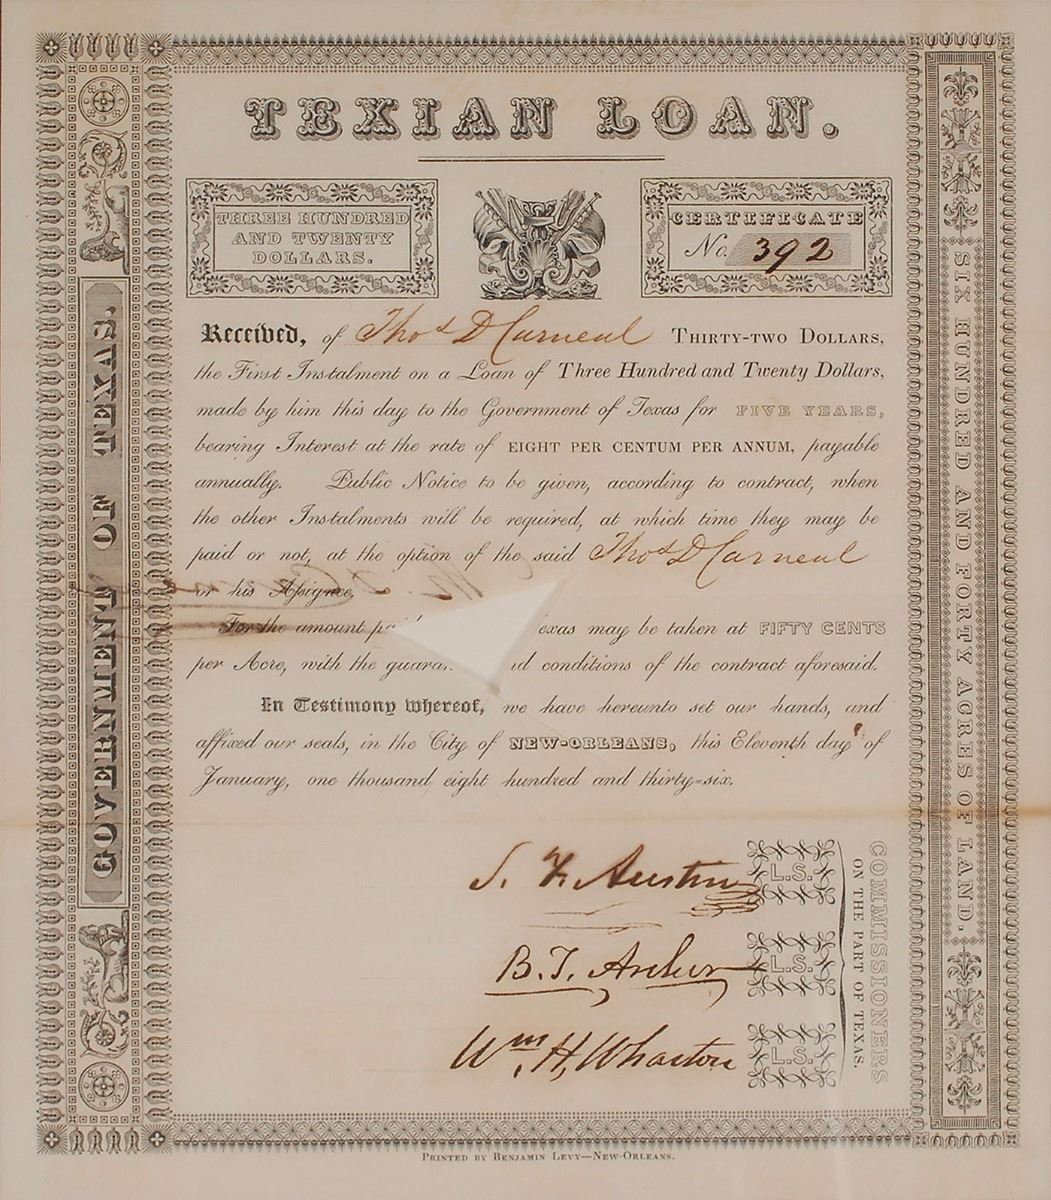 TEXIAN LOAN.
THREE HUNDRED
AND TWENTY
DOLLARS.
CERTIFICATE
No. 392
Received, of Thos D Carneal THIRTY-TWO DOLLARS,
the First Instalment on a Loan of Three Hundred and Twenty Dollars,
made by him this day to the Government of Texas for FIVE YEARS,
bearing Interest at the rate of EIGHT PER CENTUM PER ANNUM, payable
annually. Public Notice to be given, according to contract, when
the other Instalments will be required, at which time they may be
paid or not, at the option of the said Thos D Carneal
or his Assignee,
For the amount exas may be taken at FIFTY CENTS
per Acre, with the conditions of the contract aforesaid.
In Testimony whereof, we have hereunto set our hands, and
affixed our seals, in the City of NEW-ORLEANS, this Eleventh day of
January, one thousand eight hundred and thirty=six.
S. F. Austin L.S.
B. T. Archer L.S.
Wm. H. Wharton L.S.
COMMISSIONERS
ON THE PART OF TEXAS.
GOVERNMENT OF TEXAS.
SIX HUNDRED AND FORTY ACRES OF LAND.
PRINTED BY BENJAMIN LEVY—NEW-ORLEANS.